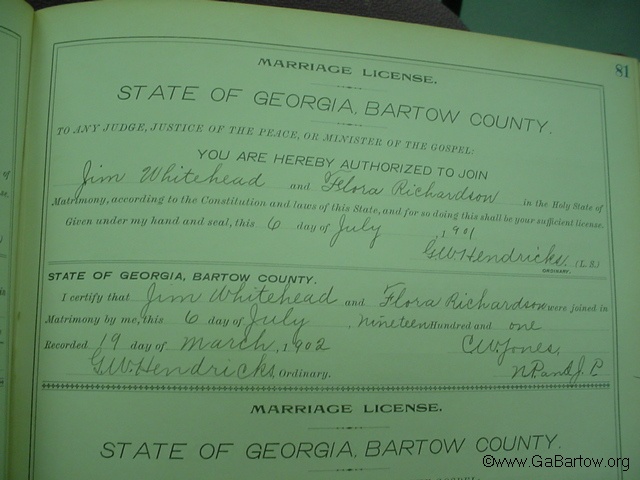 81
MARRIAGE LICENSE.
STATE OF GEORGIA, BARTOW COUNTY.
TO ANY JUDGE, JUSTICE OF THE PEACE, OR MINISTER OF THE GOSPEL:
YOU ARE HEREBY AUTHORIZED TO JOIN
Jim Whitehead and Flora Richardson in the Holy State of
Matrimony, according to the Constitution and laws of this State, and for so doing this shall be your sufficient license.
Given under my hand and seal, this 6 day of July 1901
G.W. Hendricks. (L. S.)
ORDINARY.
STATE OF GEORGIA, BARTOW COUNTY.
I certify that Jim Whitehead and Flora Richardson were joined in
Matrimony by me, this 6 day of July, nineteen Hundred and one
Recorded 19 day of March, 1902 C.W. Jones,
G.W. Hendricks. Ordinary. J. P
MARRIAGE LICENSE.
STATE OF GEORGIA, BARTOW COUNTY.
©www.GaBartow.org